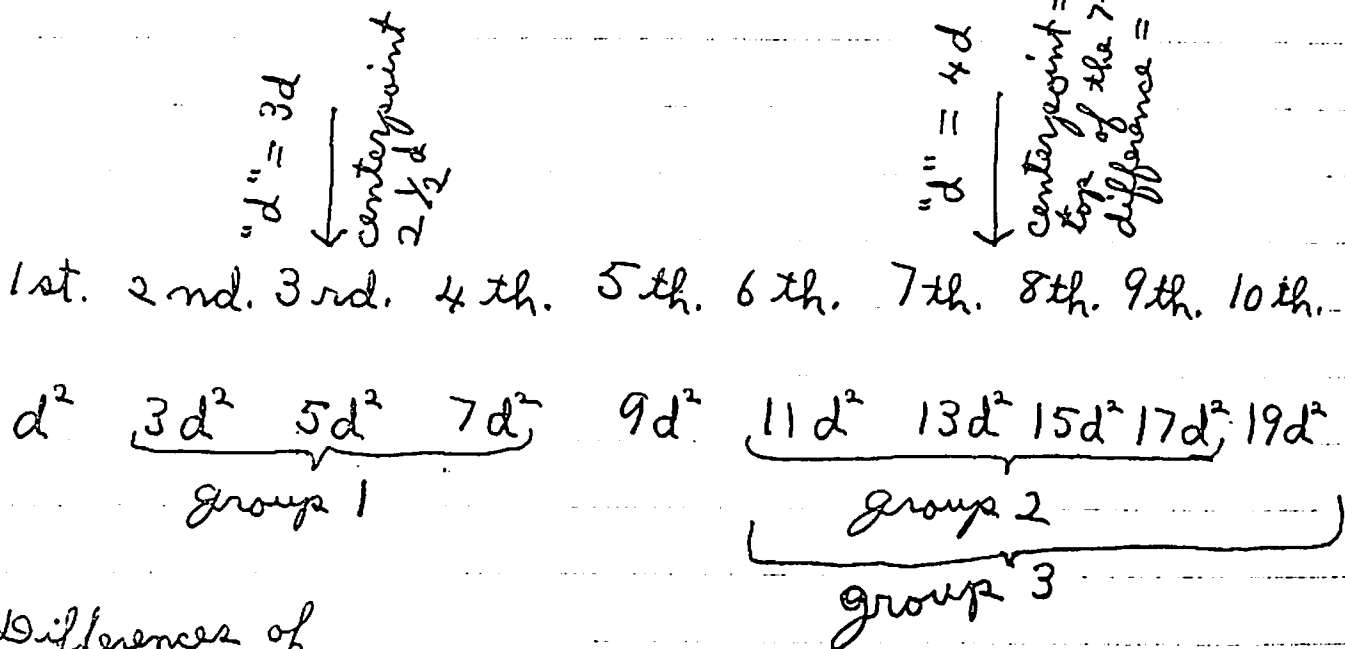 "d" = 3d
centerpoint
2 1/2 d
"d" = 4d
centerpoint =
top of the 7
difference =
1st. 2nd. 3rd. 4th. 5th. 6th. 7th. 8th. 9th. 10th.
d² 3d² 5d² 7d² 9d² 11d² 13d² 15d² 17d² 19d²
group 1
group 2
group 3
Differences of